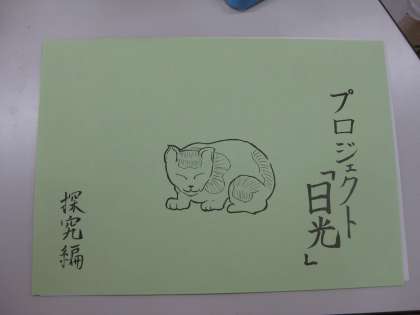 プロジェクト「日光」
探究編